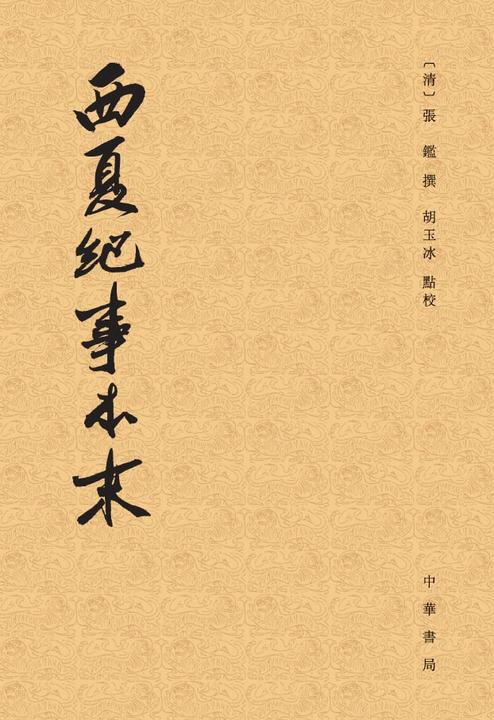 〔清〕張鑑撰 胡玉冰點校
西夏紀事本末
中華書局